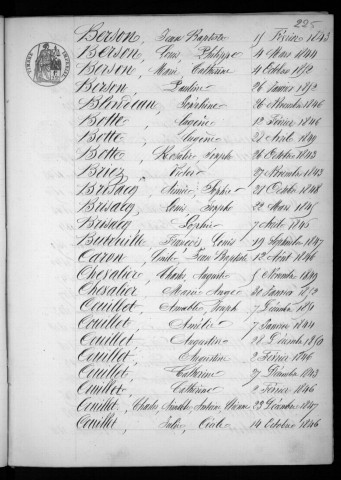 225
Berson, Jean Baptiste 11 Février 1843
Berson, Louis Philippe 4 Mars 1844
Berson, Marie Catherine 4 Octobre 1852
Berson, Pauline 26 Janvier 1852
Joséphine 26 Novembre 1846
Botte, Eugène 12 Février 1846
Botte, Eugène 28 Août 1849
Botte, Rosalie Joseph 26 Octobre 1843
Briez, Victoire 27 Novembre 1843
Brisacq, Sophie 21 Octobre 1848
Brisacq, Louis Joseph 22 Mars 1845
Brisacq, Sophie 7 Août 1845
François Louis 19 Septembre 1847
Caron, Jean Baptiste 12 Août 1846
Chevalier, Charles Auguste 5 Novembre 1849
Chevalier, Marie Ange 20 Janvier 1852
Couillet, Amable Joseph 7 Décembre
Couillet, Amélie 7 Janvier 1844
Couillet, Augustine 28 Décembre 1850
Couillet, Augustine 2 Février 1846
Couillet, Catherine 27 Décembre 1843
Couillet, Catherine 2 Février 1846
Couillet, Charles 23 Décembre 1847
Couillet, Jules 14 Octobre 1846